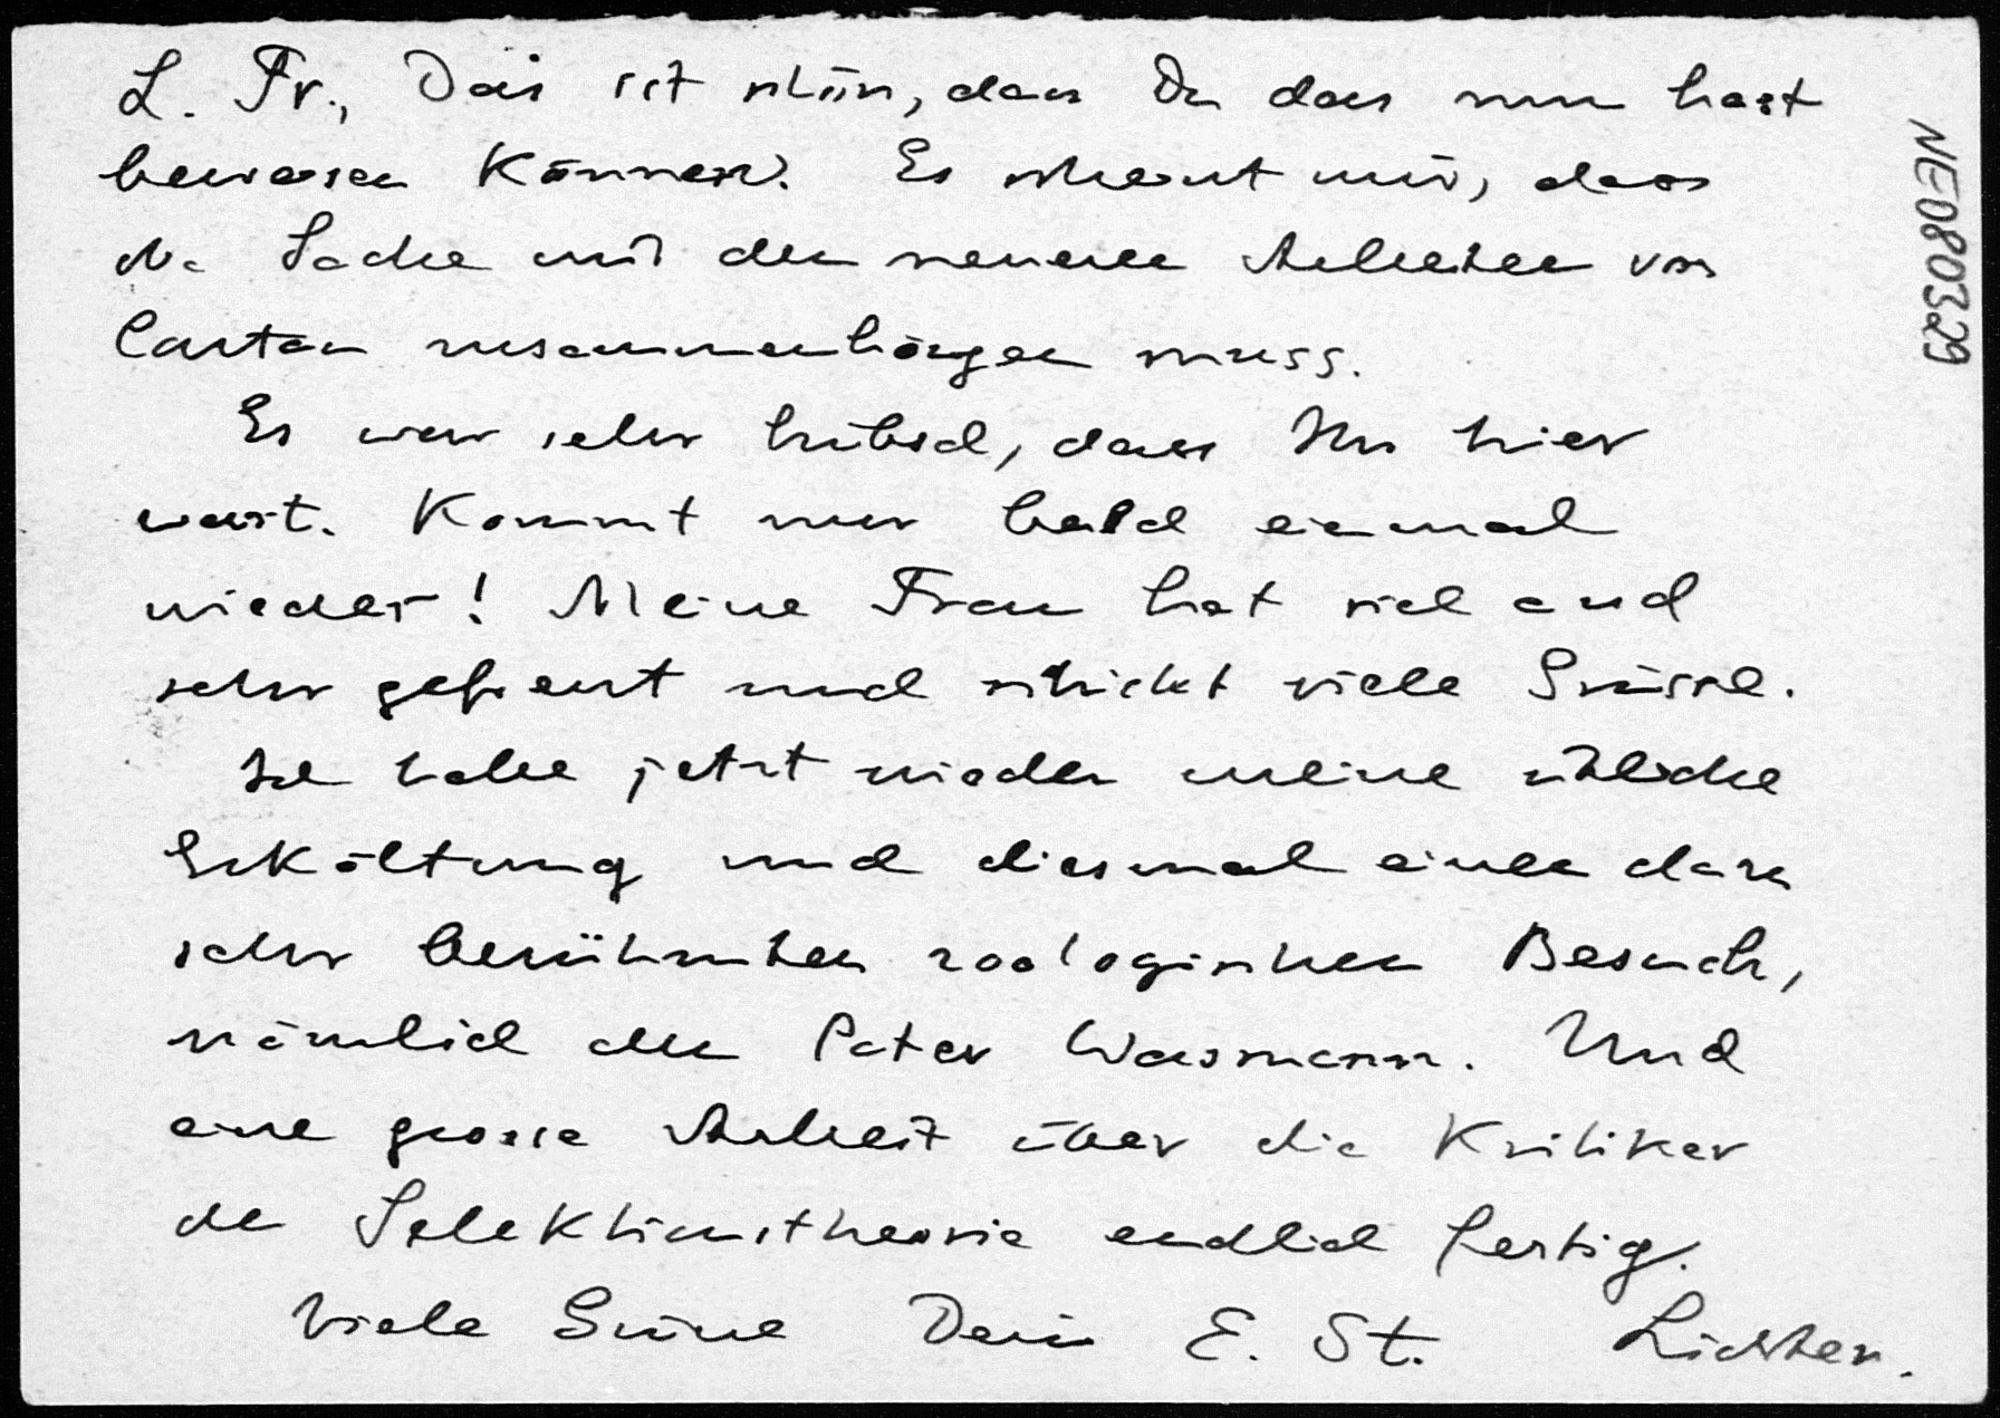 L. Fr., Das ist schön, dass Du das nun hast
beweisen können. Es scheint mir, dass
die Sache mit den neueren Arbeiten von
Cartan zusammenhängen muss.
Es war sehr hübsch, dass Ihr hier
wart. Kommt nur bald einmal
wieder! Meine Frau hat sich auch
sehr gefreut und schickt viele Grüsse.
Ich habe jetzt wieder meine übliche
Erkältung und diesmal einen dazu
sehr berühmten zoologischen Besuch,
nämlich den Pater Wasmann. Und
eine grosse Arbeit über die Kritiker
der Selektionstheorie endlich fertig.
Viele Grüsse Dein E. St.
NE080329